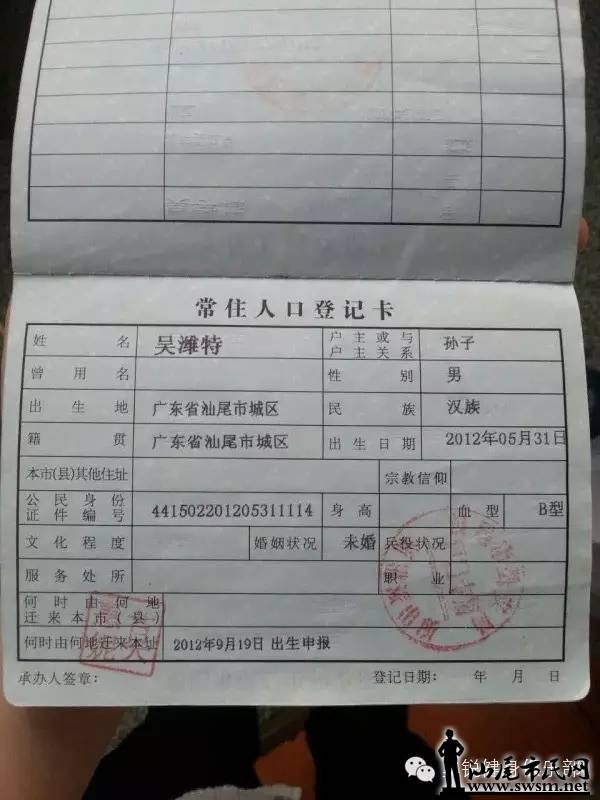 常住人口登记卡
姓名 吴潍特 户主或与户主关系 孙子
曾用名 性别 男
出生地 广东省汕尾市城区 民族 汉族
籍贯 广东省汕尾市城区 出生日期 2012年05月31日
本市(县)其他住址 宗教信仰
公民身份证件编号 441502201205311114 身高 血型 B型
文化程度 婚姻状况 未婚 兵役状况
服务处所 职业
何时由何地迁来本市(县)
何时由何地迁来本址 2012年9月19日 出生申报
承办人签章: 登记日期: 年 月 日
汕尾市民网
www.swsm.net